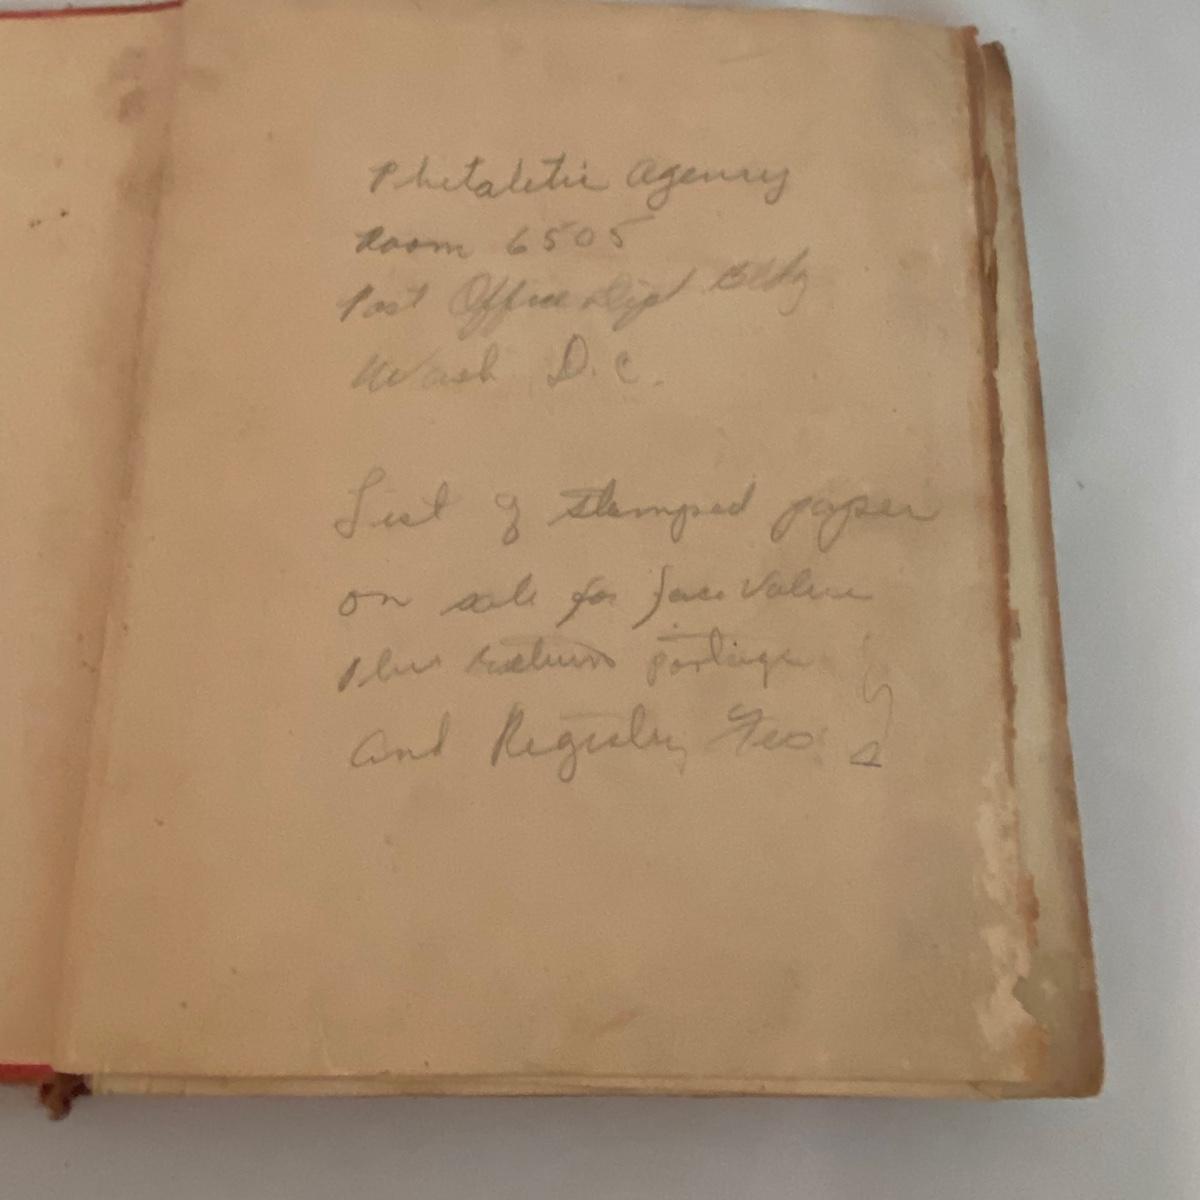 Phitaletic Agency
Room 6505
Post Office Dept Bldg
Wash D.C.
List of stamped paper
on sale for face value
plus return postage
and Registry Fee.